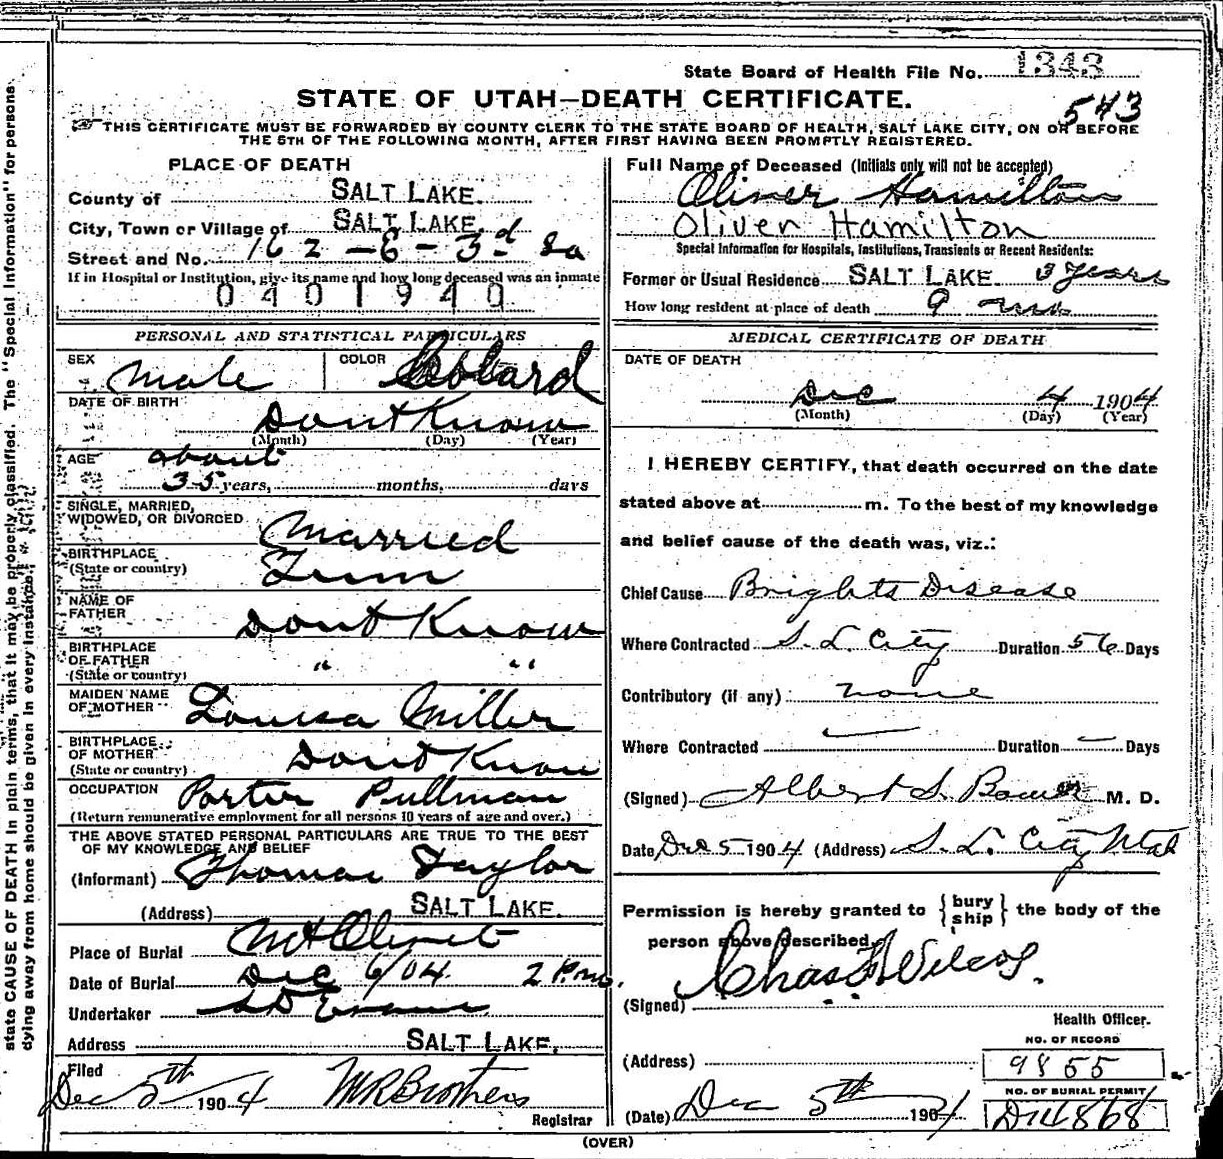 State Board of Health File No. 1343
543
STATE OF UTAH—DEATH CERTIFICATE.
THIS CERTIFICATE MUST BE FORWARDED BY COUNTY CLERK TO THE STATE BOARD OF HEALTH, SALT LAKE CITY, ON OR BEFORE
THE 5TH OF THE FOLLOWING MONTH, AFTER FIRST HAVING BEEN PROMPTLY REGISTERED.
state CAUSE OF DEATH in plain terms, that it may be properly classified. The "Special Information" for persons
dying away from home should be given in every instance.
PLACE OF DEATH
County of SALT LAKE.
City, Town or Village of SALT LAKE.
Street and No. 162 - E - 3rd So
If in Hospital or Institution, give its name and how long deceased was an inmate
0401940
PERSONAL AND STATISTICAL PARTICULARS
SEX Male COLOR
DATE OF BIRTH Dont Know
(Month) (Day) (Year)
AGE about
35 years, months, days
SINGLE, MARRIED,
WIDOWED, OR DIVORCED Married
BIRTHPLACE
(State or country) Tenn
NAME OF
FATHER Dont Know
BIRTHPLACE
OF FATHER " "
(State or country)
MAIDEN NAME
OF MOTHER Louisa Miller
BIRTHPLACE
OF MOTHER Dont Know
(State or country)
OCCUPATION Porter Pullman
(Return remunerative employment for all persons 10 years of age and over.)
THE ABOVE STATED PERSONAL PARTICULARS ARE TRUE TO THE BEST
OF MY KNOWLEDGE AND BELIEF
(Informant) Thomas Taylor
(Address) SALT LAKE.
Place of Burial Mt Olivet
Date of Burial Dec 6/04. 2 P.m.
Undertaker S D Evans
Address SALT LAKE.
Filed
Dec 5th 1904 M R Brothers
Registrar
Full Name of Deceased (Initials only will not be accepted)
Oliver Hamilton
Oliver Hamilton
Special Information for Hospitals, Institutions, Transients or Recent Residents:
Former or Usual Residence SALT LAKE. 3 years
How long resident at place of death 9
MEDICAL CERTIFICATE OF DEATH
DATE OF DEATH
Dec 4 1904
(Month) (Day) (Year)
I HEREBY CERTIFY, that death occurred on the date
stated above at m. To the best of my knowledge
and belief cause of the death was, viz.:
Chief Cause Brights Disease
Where Contracted S. L. City Duration 56 Days
Contributory (if any) none
Where Contracted — Duration — Days
(Signed) Albert S. M. D.
Date Dec 5 1904 (Address) S. L. City Utah
Permission is hereby granted to {bury
ship} the body of the
person above described.
(Signed) Chas F Wilcox.
Health Officer.
NO. OF RECORD
(Address) 9855
NO. OF BURIAL PERMIT
(Date) Dec 5th 1904 D14868
(OVER)